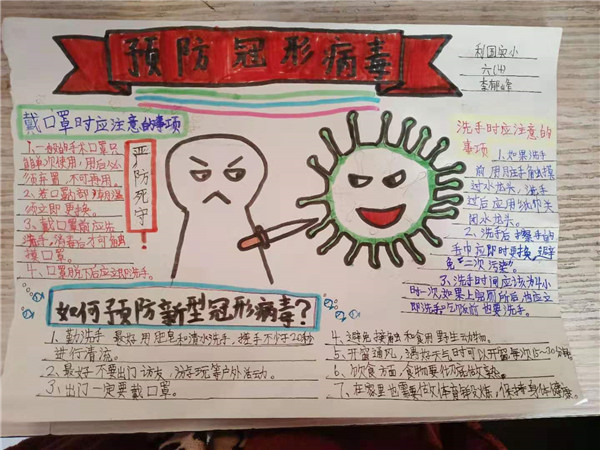 预防冠形病毒
利国实小
六(4)
李
戴口罩时应注意的事项
1、一般的手术口罩只
能单次使用,用后必
须弃置,不可再用。
2、若口罩内部
须立即更换。
3、戴口罩前应先
洗手,消毒后才可触
摸口罩。
4、口罩脱下后应立即洗手。
严防死守!
洗手时应注意的
事项
1、如果洗手
前用用过手触摸
过水龙头,洗手
过后应用水
闭水龙头。
2、洗手后擦手的
手巾应即时更换,
免二次污染。
3、洗手时间应该为4小
时一次,如果上厕所后也应立
即洗手吃饭前也要洗手。
如何预防新型冠形病毒?
1、勤洗手 最好用肥皂和清水洗手,搓手不少于20秒
进行清流。
2、最好不要出门访友,游玩等户外活动。
3、出门一定要戴口罩。
4、避免接触和食用野生动物。
5、开窗通风,遇好天气时可以开窗每次15~30分钟
6、饮食方面,食物要做熟。
7、在家里也需要做体育锻炼,保持身体健康。